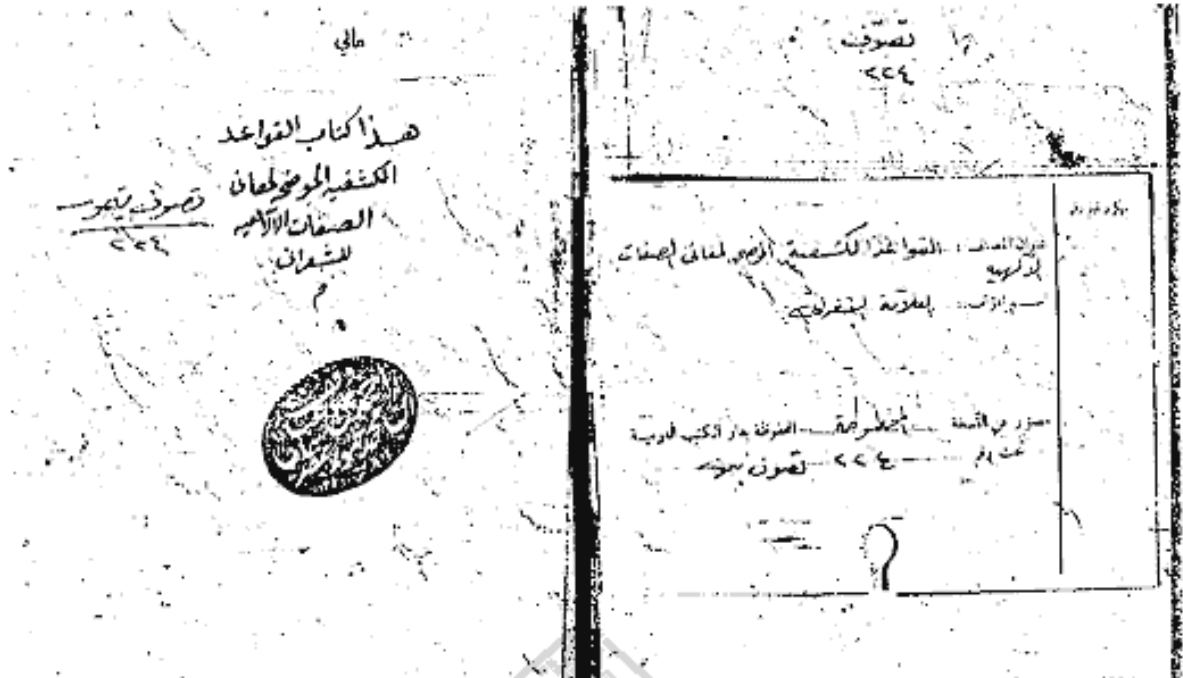 تصوف
٢٢٤
عنوان المصنف : القواعد الكشفية الموضح لمعاني الصفات
الالهية
اسم المؤلف : العلامة الشعراني
مصور عن النسخة المخطوطة المحفوظة بدار الكتب المصرية
تحت رقم ٢٢٤ تصوف تيمور
مالي
هذا كتاب القواعد
الكشفيه الموضح لمعانى
الصفات الالاهيه
للشعرانى
م
تصوف تيمور
٢٢٤